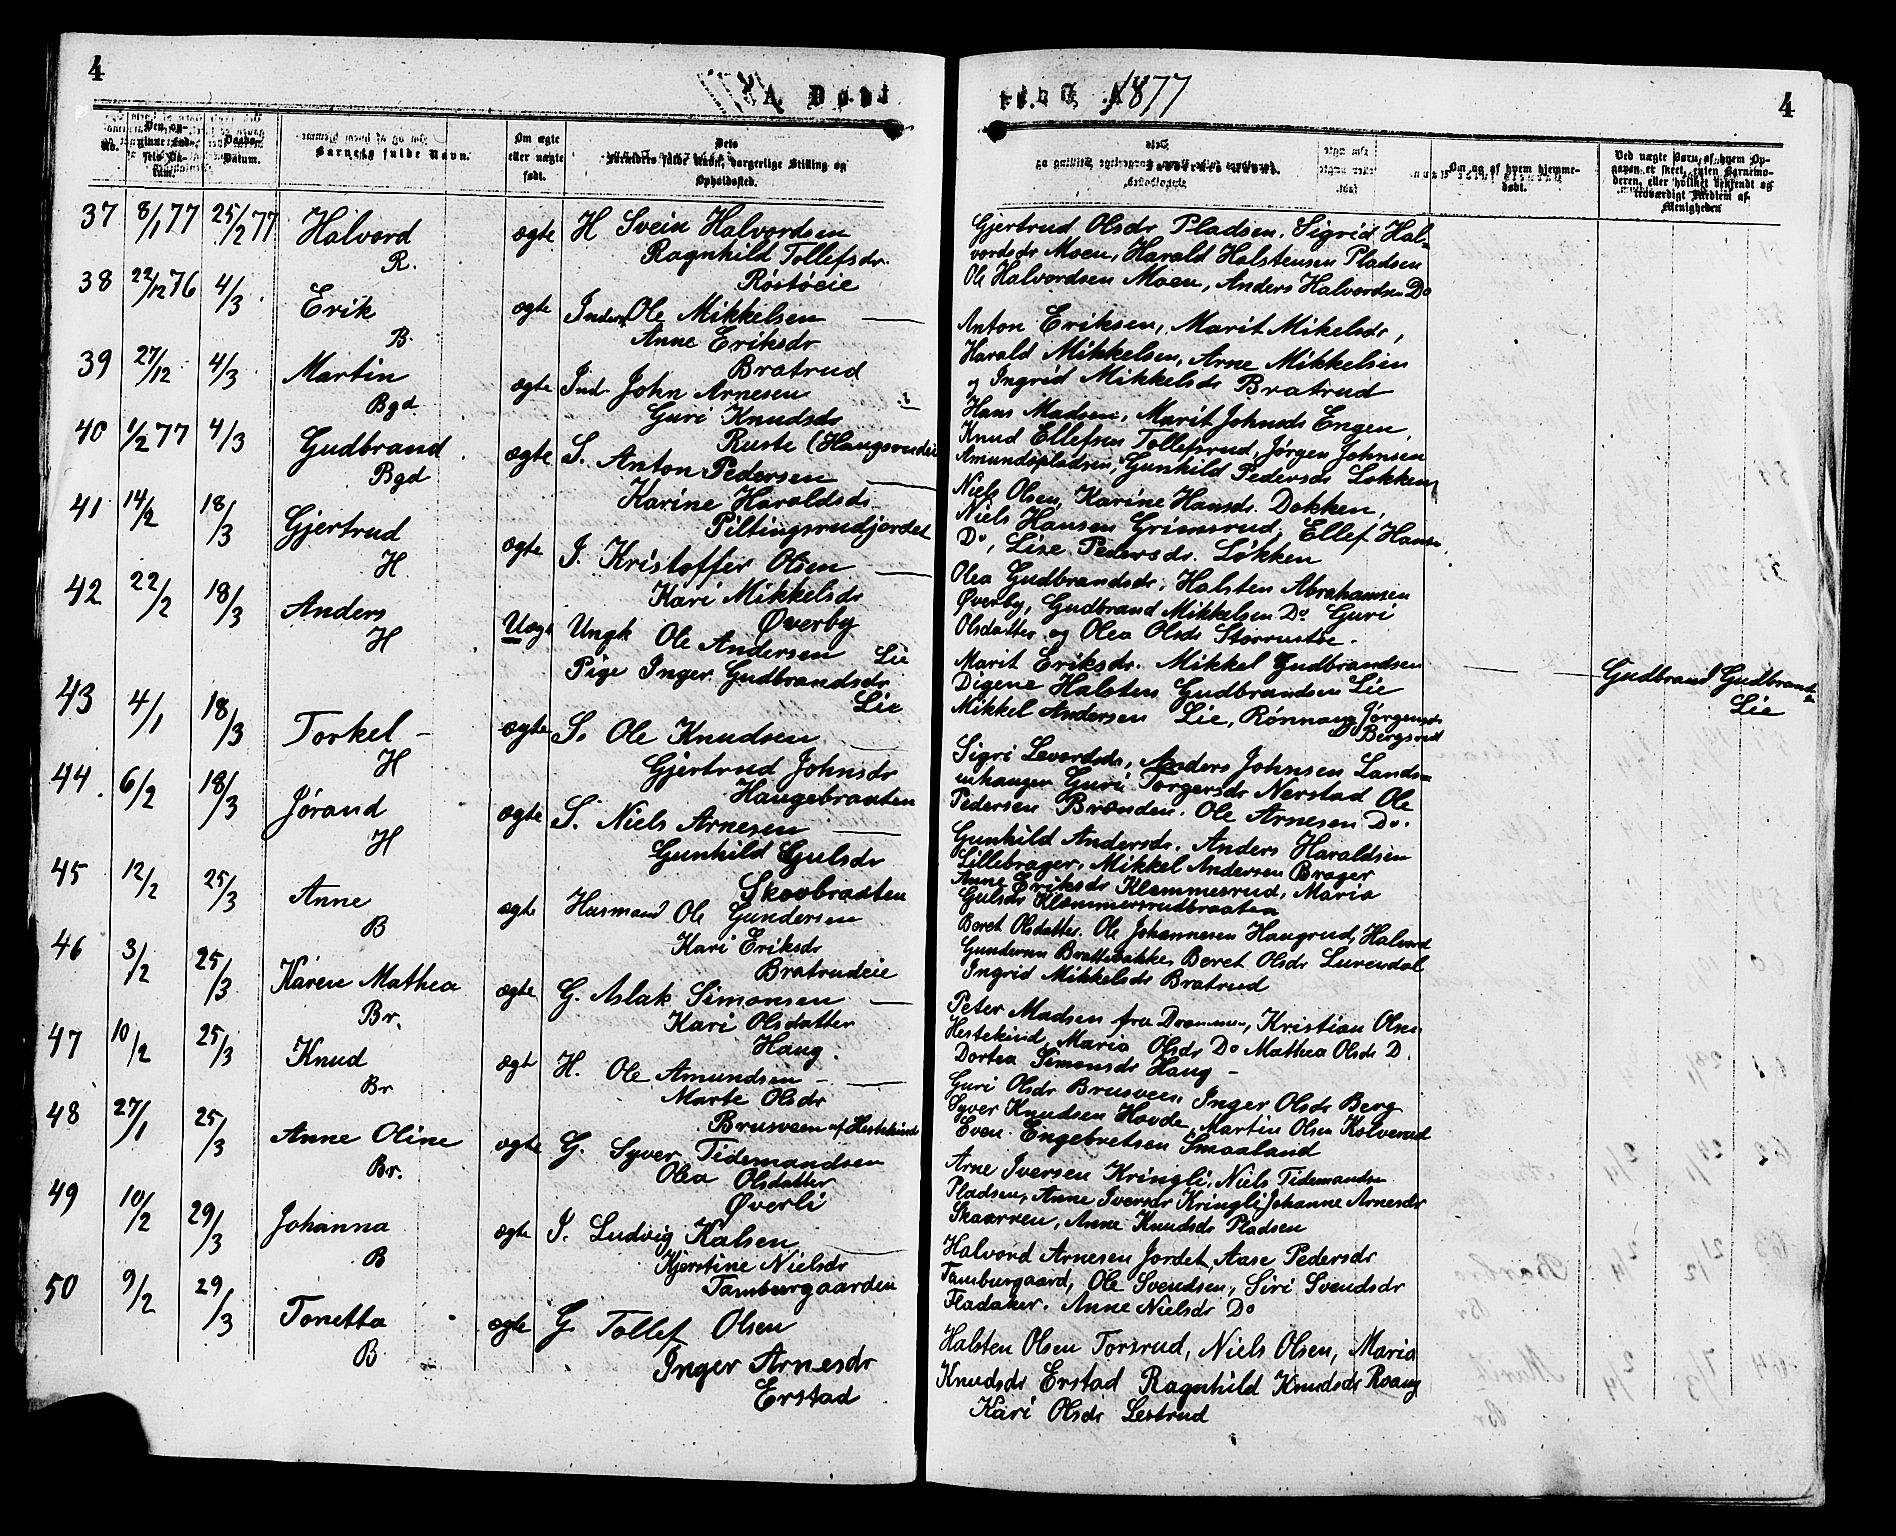 4
A Døbt
1877
4
No.
Barnets fulde Navn.
Om ægte eller uægte født.
Opholdssted.
Om og af hvem hjemmedøbt.
37 8/1 77 25/2 77 Halvord R. ægte H Svein Halvordsen
Ragnhild Tollefsdr.
Røstøeie
Gjertrud Olsdr Pladsen. Sigrid Hal-
vordsdr Moen, Harald Halstensen Pladsen
Ole Halvordsen Moen, Anders Halvordsen Do
38 22/12 76 4/3 Erik B. ægte Inderst Ole Mikkelsen
Anne Eriksdr
Bratrud
Anton Eriksen, Marit Mikelsdr,
Harald Mikkelsen, Arne Mikkelsen
og Ingrid Mikkelsdr Bratrud
39 27/12 4/3 Martin Bgd. ægte Ind John Arnesen
Guri Knudsdr
Ruste (Haugsrudeie
Hans Madsen, Marit Johnsdr Engen,
Knud Ellefsen Tollefsrud, Jørgen Johnsen
Amundspladsen, Gunhild Pedersdr Løkken
40 1/2 77 4/3 Gudbrand Bgd ægte S. Anton Pedersen
Karine Haraldsdr
Piltingsrudjordet
Niels Olsen, Karine Hansdr. Dokken,
Niels Hansen Grimsrud, Ellef Hansen
Do, Lise Pedersdr. Løkken
41 14/2 18/3 Gjertrud H. ægte I. Kristoffer Olsen
Kari Mikkelsdr
Øverby
Olea Gudbrandsdr, Halsten Abrahamsen
Øverby, Gudbrand Mikkelsen Do Guri
Olsdatter og Olea Olsdr Storrustøe.
42 22/2 18/3 Anders H Uægt Ungk Ole Andersen Lie
Pige Inger Gudbrandsdr
Lie
Marit Eriksdr. Mikkel Gudbrandsen
Digene Halsten Gudbrandsen Lie
Mikkel Andersen Lie, Rønnaug Jørgensdr
Bergsrud
Gudbrand Gudbrands
Lie
43 4/1 18/3 Torkel H ægte S. Ole Knudsen
Gjertrud Johnsdr
Haugebraaten
Sigri Levordsdr, Anders Johnsen Lands-
enhaugen Guri Torgersdr Nerstad Ole
Pedersen Brænden. Ole Arnesen Do.
44. 6/2 18/3 Jørand H ægte S. Niels Arnesen
Gunhild Gulsdr
Skovbraaten
Gunhild Andersdr. Anders Haraldsen
Lillebrager, Mikkel Andersen Brager
Anne Eriksdr Klemmesrud, Maria
Gulsdr Klemmersrudbraaten
45 12/2 25/3 Anne B ægte Husmand Ole Gundersen
Kari Eriksdr
Bratrudeie
Beret Olsdatter. Ole Johannesen Haugrud, Halvord
Gundersen Brattebakke, Beret Olsdr Lurendal
Ingrid Mikkelsdr Bratrud
46 3/2 25/3 Karen Mathea Br. ægte G. Aslak Simonsen
Kari Olsdatter
Haug.
Peter Madsen fra Drammen, Kristian Olsen
Hestekind, Maria Olsdr Do Mathea Olsdr D.
Dortea Simonsdr Haug -
47 10/2 25/3 Knud Br ægt H. Ole Amundsen
Marte Olsdr
Brusveen af Hestekind
Guri Olsdr Brusveen Inger Olsdr Berg
Syver Knudsen Hovde, Martin Olsen Kolverud
Even Engebretsen Smaaland
48 27/1 25/3 Anne Oline Br. ægte G. Syver Tidemandsen
Olea Olsdatter
Øverli
Arne Iversen Kringli, Niels Tidemandsen
Pladsen, Anne Iversdr Kringli Johanne Arnesdr
Skaarren, Anne Knudsdr Pladsen
49 10/2 29/3 Johanna B ægte I. Ludvig Kalsen
Kjerstine Nielsdr
Tamburgaarden
Halvord Arnesen Jordet, Aase Pedersdr
Tamburgaard, Ole Svendsen, Siri Svendsdr
Fladaker. Anne Nielsdr Do
50 9/2 29/3 Tonetta B ægte G. Tollef Olsen
Inger Arnesdr
Erstad
Halsten Olsen Torsrud, Niels Olsen, Maria
Knudsdr Erstad Ragnhild Knudsdr Roang
Kari Olsdr Lestrud